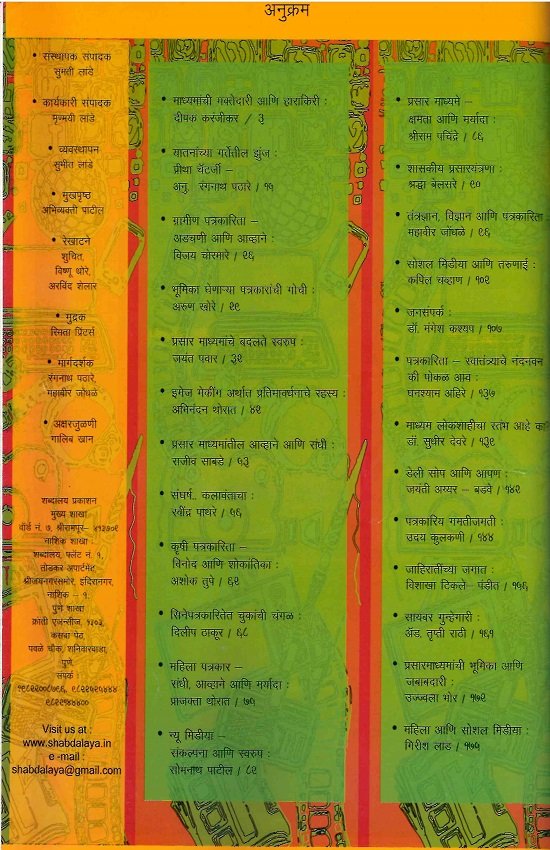 अनुक्रम
• संस्थापक संपादक
सुमती लांडे
• कार्यकारी संपादक
मृण्मयी लांडे
• व्यवस्थापन
सुमीत लांडे
• मुखपृष्ठ
अभिव्यक्ती पाटील
• रेखाटने
शुचित,
विष्णू थोरे,
अरविंद शेलार
• मुद्रक
स्मिता प्रिंटर्स
• मार्गदर्शक
रंगनाथ पठारे,
महावीर जोंधळे
• अक्षरजुळणी
गालिब खान
शब्दालय प्रकाशन
मुख्य शाखा
वॉर्ड नं. ७, श्रीरामपूर- ४१३७०९
नाशिक शाखा :
शब्दालय, फ्लॅट नं. १,
तोडकर अपार्टमेंट,
श्रीजयनगरसमोर, इंदिरानगर,
नाशिक - ९.
पुणे शाखा
क्रांती एजन्सीज, १३०३,
कसबा पेठ,
पवळे चौक, शनिवारवाडा,
पुणे.
संपर्क
Visit us at :
www.shabdalaya.in
e -mail :
shabdalaya@gmail.com
• माध्यमांची मक्तेदारी आणि हाराकिरी :
दीपक करंजीकर / ३
• यातनांच्या गर्तेतील झुंज :
प्रीथा चॅटर्जी -
अनु. रंगनाथ पठारे / ११
• ग्रामीण पत्रकारिता -
अडचणी आणि आव्हाने :
विजय चोरमारे / २६
• भूमिका घेणाऱ्या पत्रकारांची गोची :
अरुण खोरे / २९
• प्रसार माध्यमांचे बदलते स्वरुप :
जयंत पवार / ३२
• इमेज मेकींग अर्थात प्रतिमावर्धनाचे रहस्य :
अभिनंदन थोरात / ४२
• प्रसार माध्यमांतील आव्हाने आणि संधी :
राजीव साबडे / ५३
• संघर्ष.. कलावंताचा :
रवींद्र पाथरे / ५६
• कृषी पत्रकारिता -
विनोद आणि शोकांतिका :
अशोक तुपे / ६२
• सिनेपत्रकारितेत चुकांची चंगळ :
दिलीप ठाकूर / ६८
• महिला पत्रकार -
संधी, आव्हाने आणि मर्यादा :
प्राजक्ता थोरात / ७५
• न्यू मिडीया -
संकल्पना आणि स्वरुप :
सोमनाथ पाटील / ८२
• प्रसार माध्यमे -
क्षमता आणि मर्यादा :
श्रीराम पचिंद्रे / ८६
• शासकीय प्रसारयंत्रणा :
श्रद्धा बेलसरे / ९०
• तंत्रज्ञान, विज्ञान आणि पत्रकारिता
महावीर जोंधळे / ९६
• सोशल मिडीया आणि तरुणाई :
कपिल चव्हाण / १०२
• जनसंपर्क :
डॉ. मंगेश कश्यप / १०७
• पत्रकारिता - स्वातंत्र्याचे नंदनवन
की पोकळ आव :
घनश्याम अहिरे / १३७
• माध्यम लोकशाहीचा स्तंभ आहे का
डॉ. सुधीर देवरे / १३९
• डेली सोप आणि आपण :
जयंती अय्यर - बडवे / १४२
• पत्रकारिय गमतीजमती :
उदय कुलकर्णी / १४४
• जाहिरातींच्या जगात :
विशाखा टिकले - पंडीत / १५६
• सायबर गुन्हेगारी :
अ‍ॅड. तृप्ती राठी / १६१
• प्रसारमाध्यमांची भूमिका आणि
जबाबदारी :
उज्ज्वला भोर / १७२
• महिला आणि सोशल मिडीया :
गिरीश लाड / १७५